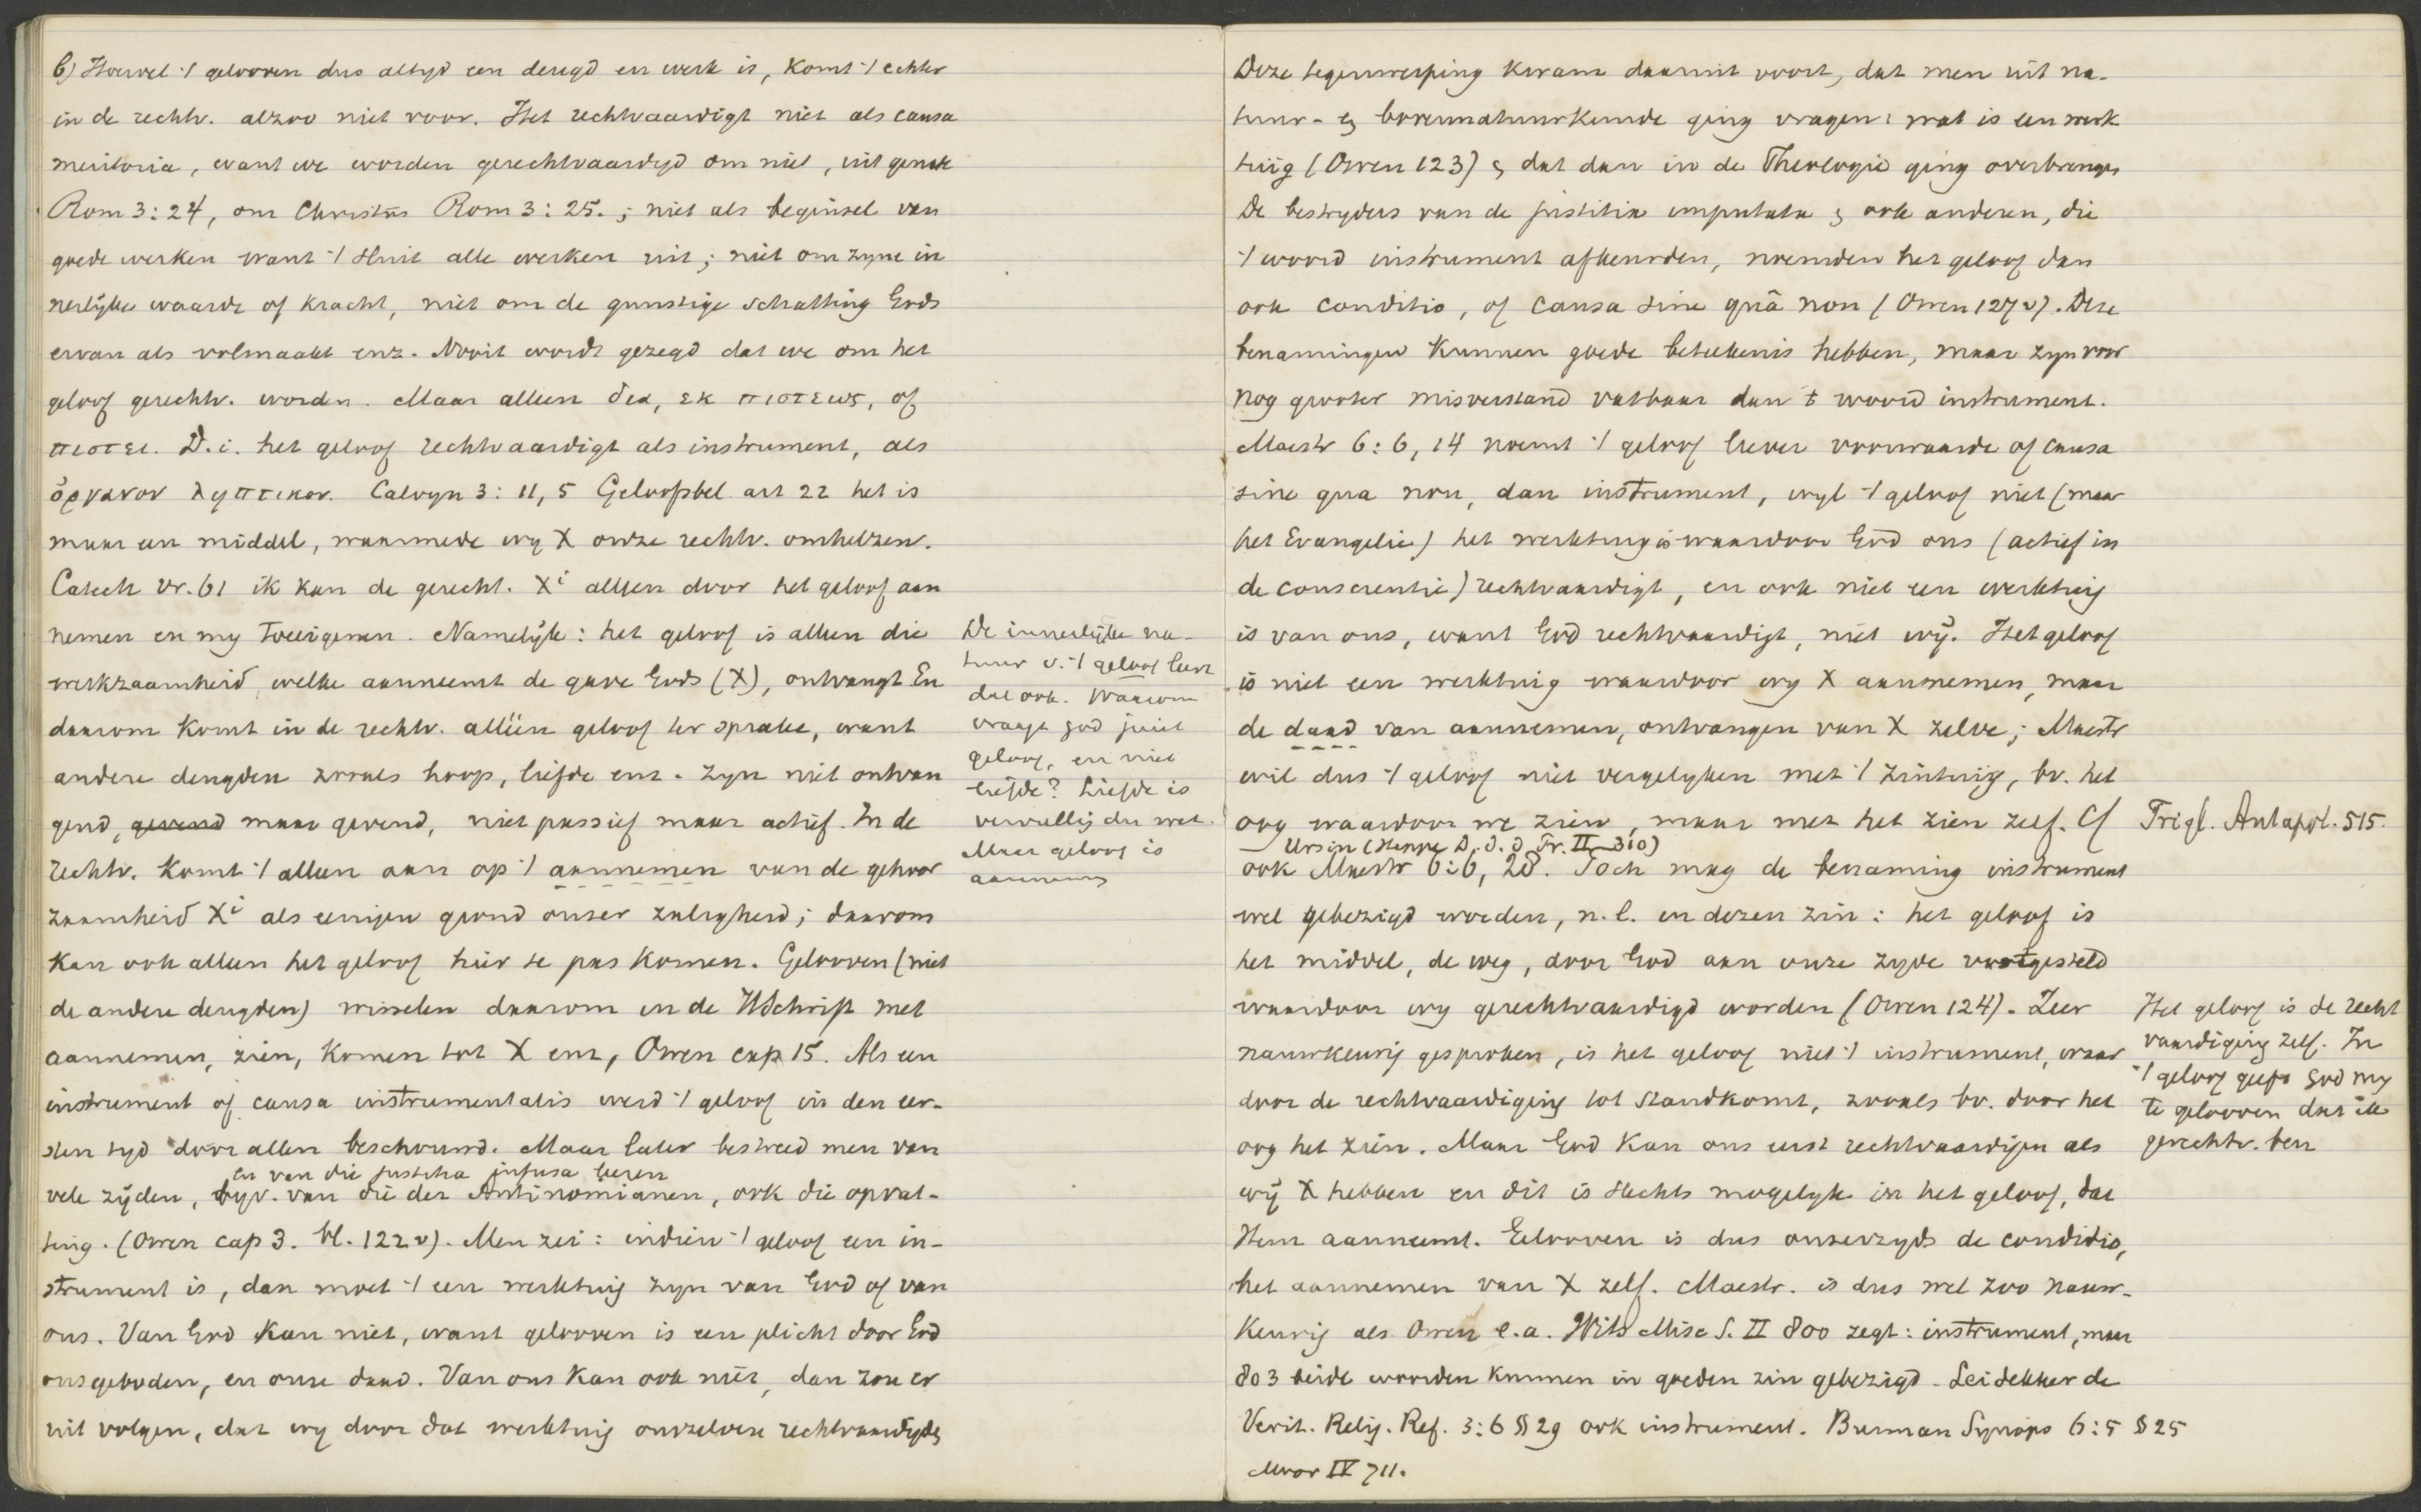 b) Hoewel 't gelooven dus altyd een deugd en werk is, komt 't echter
in de rechtv. alzoo niet voor. Het rechtvaardigt niet als causa
meritoria, want we worden gerechtvaardigd om niet, uit genade
Rom 3:24, om Christus Rom 3:25.; niet als beginsel van
goede werken want 't sluit alle werken uit; niet om zyne in
nerlyke waarde of kracht, niet om de gunstige schatting Gods
ervan als volmaakt enz. Nooit wordt gezegd dat we om het
geloof gerechtv. worden. Maar alleen δια, εκ πιστεως, of
πιστει. D.i. het geloof rechtvaardigt als instrument, als
ὀργανον ληπτικον. Calvyn 3:11,5 Geloofsbel. art 22 het is
maar een middel, waarmede wy X onze rechtv. omhelzen.
Catech vr. 61 ik kan de gerecht. Xi alleen door het geloof aan
nemen en my toeeigenen. Namelyk: het geloof is alleen die
werkzaamheid, welke aanneemt de gave Gods (X), ontvangt En
daarom komt in de rechtv. alléén geloof ter sprake, want
andere deugden zooals hoop, liefde enz. zyn niet ontvan
gend, gevend maar gevend, niet passief maar actief. In de
rechtv. komt 't alleen aan op 't aannemen van de gehoor
zaamheid Xi als eenigen grond onzer zaligheid; daarom
kan ook alleen het geloof hier te pas komen. Gelooven (niet
de andere deugden) wisselen daarom in de HSchrift met
aannemen, zien, komen tot X enz, Owen cap 15. Als een
instrument of causa instrumentalis werd 't geloof in den eer-
sten tyd door allen beschouwd. Maar later bestreed men van
en van die justitia infusa leeren
vele zyden, byv. van die der Antinomianen, ook die opvat-
ting. (Owen cap 3. bl. 122 v). Men zei: indien 't geloof een in-
strument is, dan moet 't een werktuig zyn van God of van
ons. Van God kan niet, want gelooven is een plicht door God
ons geboden, en onze daad. Van ons kan ook niet, dan zou er
uit volgen, dat wy door dat werktuig onszelven rechtvaardigden
De innerlyke na-
tuur v. 't geloof leert
dat ook. Waarom
vraagt god juist
geloof, en niet
liefde? Liefde is
vervulling der wet.
Maar geloof is
aannemen
Deze tegenwerping kwam daaruit voort, dat men uit na-
tuur- en bovennatuurkunde ging vragen: wat is een werk
tuig (Owen 123) en dat dan in de Theologie ging overbrengen
De bestryders van de justitia imputata en ook anderen, die
't woord instrument afkeurden, noemden het geloof dan
ook conditio, of causa sine quâ non (Owen 127 v). Deze
benamingen kunnen goede beteekenis hebben, maar zyn voor
nog grooter misverstand vatbaar dan 't woord instrument.
Maestr 6:6,14 noemt 't geloof liever voorwaarde of causa
sine qua non, dan instrument, wyl 't geloof niet (maar
het Evangelie) het werktuig is waardoor God ons (actief in
de conscientie) rechtvaardigt, en ook niet een werktuig
is van ons, want God rechtvaardigt, niet wy. Het geloof
is niet een werktuig waardoor wy X aannemen, maar
de daad van aannemen, ontvangen van X zelve; Maestr
wil dus 't geloof niet vergelyken met 't zintuig, bv. het
oog waardoor we zien, maar met het zien zelf. Cf Trigl. Antapol. 515.
Ursin (Heppe D.d.d Pr. II 310)
ook Maestr 6:6, 28. Toch mag de benaming instrument
wel gebezigd worden, n.l. in dezen zin: het geloof is
het middel, de weg, door God aan onze zyde vastgesteld
waardoor wy gerechtvaardigd worden (Owen 124). Zeer
nauwkeurig gesproken, is het geloof niet 't instrument, waar
door de rechtvaardiging tot stand komt, zooals bv. door het
oog het zien. Maar God kan ons eerst rechtvaardigen als
wy X hebben en dit is slechts mogelyk in het geloof, dat
Hem aanneemt. Gelooven is dus onzerzyds de conditio,
het aannemen van X zelf. Maestr. is dus wel zoo nauw-
keurig als Owen e.a. Wits Misc S. II 800 zegt: instrument, maar
803 beide woorden kunnen in goeden zin gebezigd. Leidekker de
Verit. Relig. Ref. 3:6 § 29 ook instrument. Burman Synops 6:5 § 25
Moor IV 711.
Het geloof is de recht
vaardiging zelf. In
't geloof geeft God my
te gelooven dat ik
gerechtv. ben